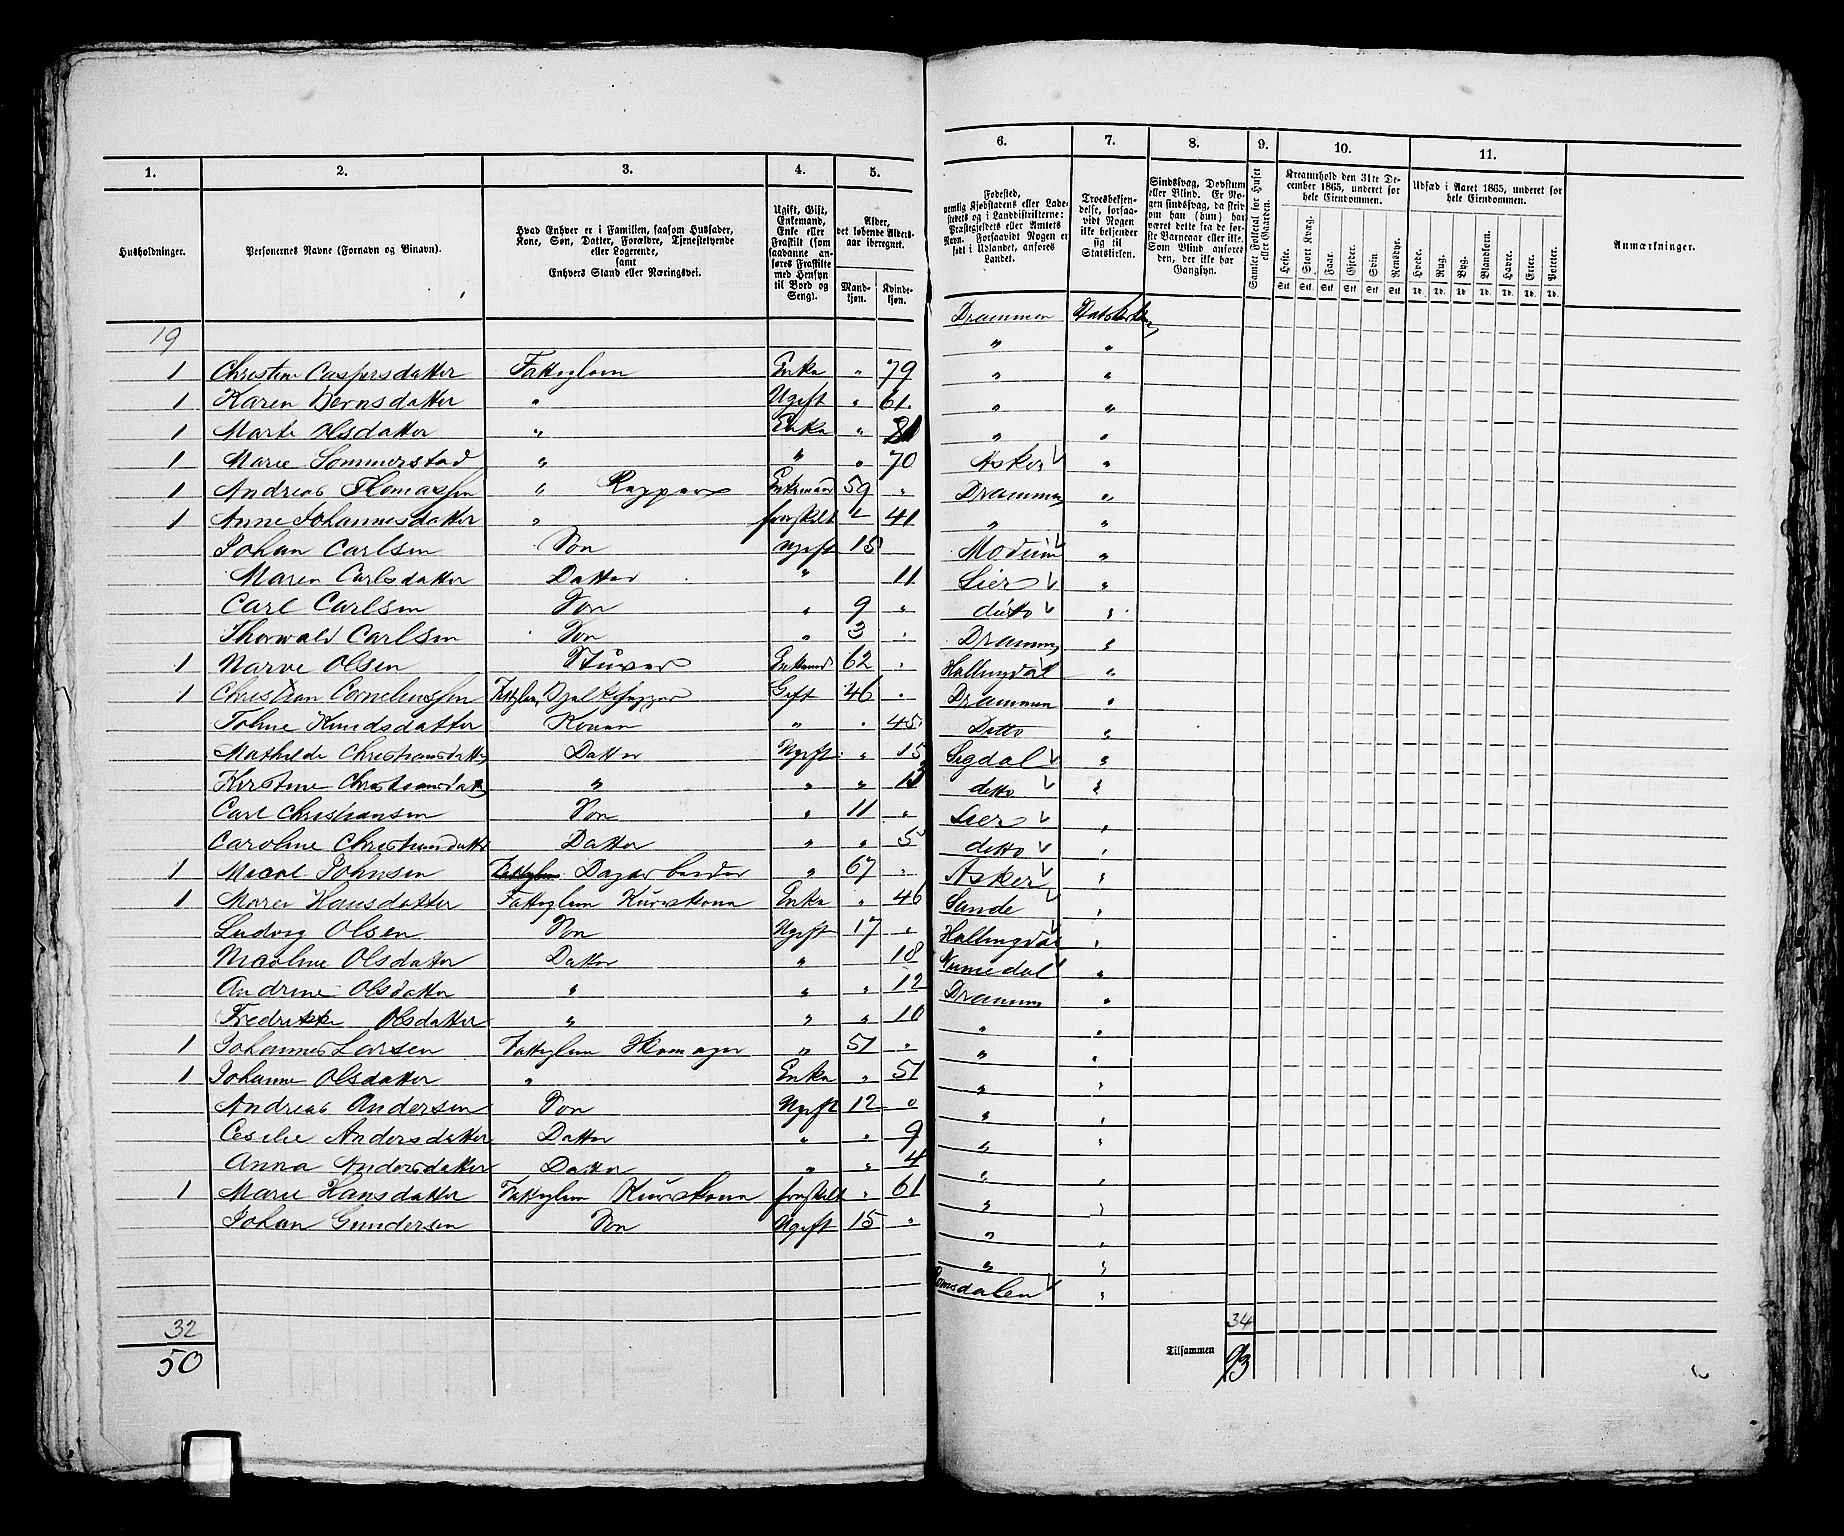 1. 2. 3. 4. 5.
Husholdninger.
Personernes Navne (Fornavn og Binavn).
Hvad Enhver er i Familien, saasom Husfader,
Kone, Søn, Datter, Forældre, Tjenestetyende
eller Logerende,
samt
Enhvers Stand eller Næringsvei.
Ugift, Gift,
Enkemand,
Enke eller
Fraskilt (som
saadanne an-
føres Fraskilte
med Hensyn
til Bord og
Seng).
Alder,
det løbende Alders-
aar iberegnet.
Mand-
kjøn.
Kvinde-
kjøn.
19
1 Christine Caspersdatter Fattiglem Enke " 79
1 Karen Bernsdatter " Ugift " 61
1 Marte Olsdatter " Enke " 81
1 Marie Sommerstad " " " 70
1 Andreas Thomassen " Enkemand 59 "
1 Anne Johannesdatter " fraskilt " 41
Johan Carlsen Søn Ugift 15
Maren Carlsdatter Datter " 11
Carl Carlsen Søn " 9 "
Thorwald Carlsen Søn " 3 "
1 Narve Olsen Stuver Enkemand 62 "
1 Christian Corneliussen Fattiglem, Gift 46 "
Tohne Knudsdatter Konen " " 45
Mathilde Christiansdatter Datter Ugift " 15
Kirstine Christiansdatter " " " 13
Carl Christiansen Søn " 11 "
Caroline Christiansdatter Datter " " 5
1 Micol Johnsen Dagarbeider " 67 "
1 Maren Hansdatter Fattiglem Kurvkone Enke " 46
Ludvig Olsen Søn Ugift 17 "
Nicoline Olsdatter Datter " 18
Andrine Olsdatter " " " 12
Fredrikke Olsdatter " " " 10
1 Johannes Larsen Fattiglem Skomager " 51 "
1 Johanne Olsdatter " Enke " 51
Andreas Andersen Søn Ugift 12 "
Cesilie Andersdatter Datter " " 9
Anna Andersdatter Datter " " 4
1 Marie Hansdatter Fattiglem Kurvkone fraskilt " 61
Johan Gundersen Søn Ugift 15 "
32
50
6. 7. 8. 9. 10. 11.
Fødested,
nemlig Kjøbstadens eller Lade-
stedets og i Landdistrikterne:
Præstegjeldets eller Amtets
Navn. Forsaavidt Nogen er
født i Udlandet, anføres
Landet.
Troesbekjen-
delse, forsaa-
vidt Nogen
ikke bekjender
sig til
Statskirken.
Sindssvag, Døvstum
eller Blind. Er No-
gen sindssvag, da skriv
om han (hun) har
været dette fra de før-
ste Barneaar eller ikke.
Som Blind anføres
den, der ikke har
Gangsyn.
Samlet Folketal for Huset
eller Gaarden.
Kreaturhold den 31te De-
cember 1865, underet for
hele Eiendommen.
Heste. Stort Kvæg. Faar. Gjeder. Svin. Rensdyr.
Stk. Stk. Stk. Stk. Stk. Stk.
Udsæd i Aaret 1865, underet for
hele Eiendommen.
Hvede. Rug. Byg. Blandkorn. Havre. Erter. Poteter.
Td. Td. Td. Td. Td. Td. Td.
Anmærkninger.
Drammen Statskirken
" "
" "
" "
" "
Asker "
Drammen "
" "
Modum "
Lier "
ditto "
Drammen "
Hallingdal "
Drammen "
Ditto "
Sigdal "
ditto "
Lier "
ditto "
Asker "
Sande "
Hallingdal "
Numedal "
Drammen "
" "
" "
" "
" "
" "
" "
" "
" "
" "
Romsdalen "
34
Tilsammen 93